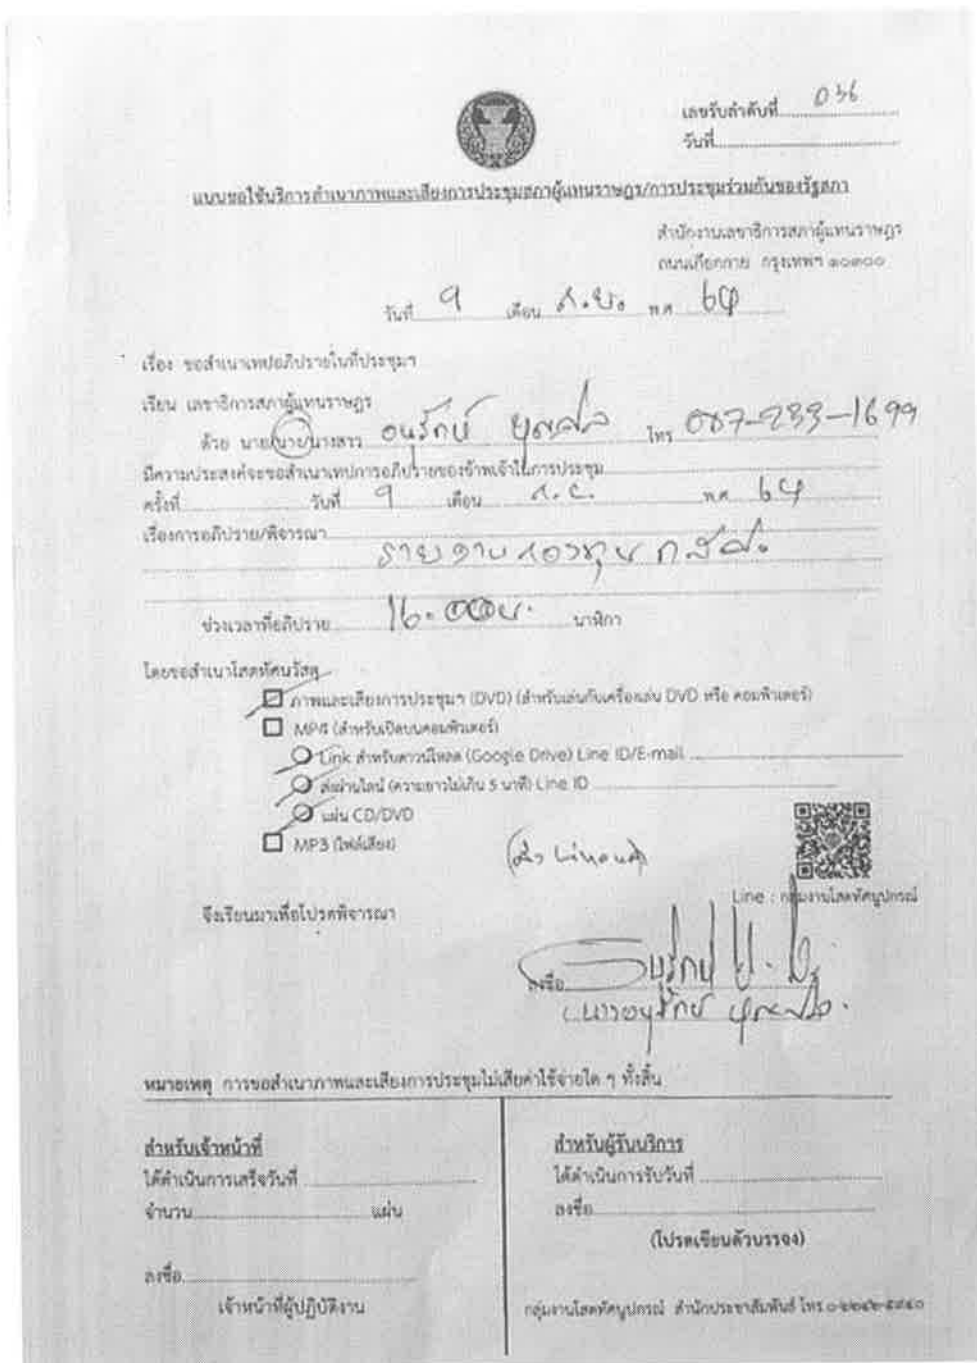 เลขรับลำดับที่ 036
วันที่
แบบขอใช้บริการสำเนาภาพและเสียงการประชุมสภาผู้แทนราษฎร/การประชุมร่วมกันของรัฐสภา
สำนักงานเลขาธิการสภาผู้แทนราษฎร
ถนนเกียกกาย กรุงเทพฯ ๑๐๓๐๐
วันที่ 9 เดือน ก.ย. พ.ศ. 64
เรื่อง ขอสำเนาเทปอภิปรายในที่ประชุมฯ
เรียน เลขาธิการสภาผู้แทนราษฎร
ด้วย นาย/นาง/นางสาว อนุรักษ์ บุญศล โทร 087-233-1699
มีความประสงค์จะขอสำเนาเทปการอภิปรายของข้าพเจ้าในการประชุม
ครั้งที่ วันที่ 9 เดือน ก.ย. พ.ศ. 64
เรื่องการอภิปราย/พิจารณา
รายงานกองทุน กสศ.
ช่วงเวลาที่อภิปราย 16.00น. นาฬิกา
โดยขอสำเนาโสตทัศนวัสดุ
ภาพและเสียงการประชุมฯ (DVD) (สำหรับเล่นกับเครื่องเล่น DVD หรือ คอมพิวเตอร์)
MP4 (สำหรับเปิดบนคอมพิวเตอร์)
Link สำหรับดาวน์โหลด (Google Drive) Line ID/E-mail
ส่งผ่านไลน์ (ความยาวไม่เกิน 5 นาที) Line ID
แผ่น CD/DVD
MP3 (ไฟล์เสียง)
Line : กลุ่มงานโสตทัศนูปกรณ์
จึงเรียนมาเพื่อโปรดพิจารณา
ลงชื่อ อนุรักษ์
นางอนุรักษ์ บุญศล
หมายเหตุ การขอสำเนาภาพและเสียงการประชุมไม่เสียค่าใช้จ่ายใด ๆ ทั้งสิ้น
สำหรับเจ้าหน้าที่
ได้ดำเนินการเสร็จวันที่
จำนวน แผ่น
ลงชื่อ
เจ้าหน้าที่ผู้ปฏิบัติงาน
สำหรับผู้รับบริการ
ได้ดำเนินการรับวันที่
ลงชื่อ
(โปรดเขียนตัวบรรจง)
กลุ่มงานโสตทัศนูปกรณ์ สำนักประชาสัมพันธ์ โทร